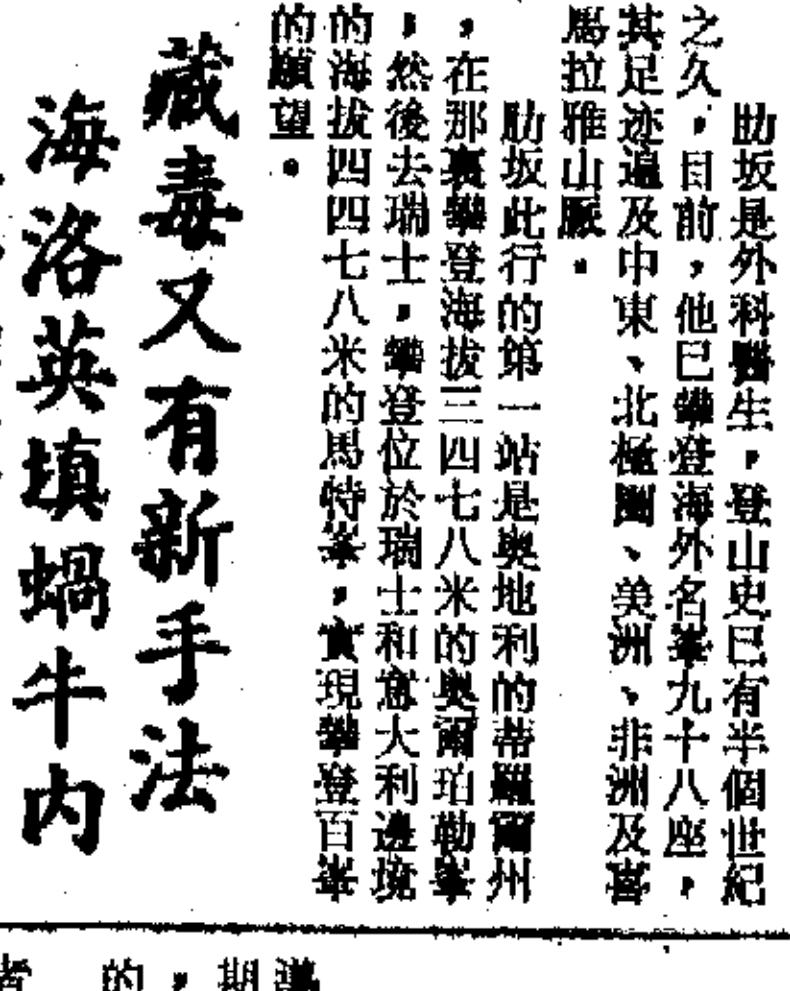 肋坂是外科醫生，登山史已有半個世紀
之久，目前，他已攀登海外名峯九十八座，
其足迹遍及中東、北極圈、美洲、非洲及喜
馬拉雅山脈。
肋坂此行的第一站是奥地利的蒂羅爾州
，在那裏攀登海拔三四七八米的奥爾珀勒峯
，然後去瑞士，攀登位於瑞士和意大利邊境
的海拔四四七八米的馬特峯，實現攀登百峯
的願望。
藏毒又有新手法
海洛英填蝸牛内
期
，
的
者